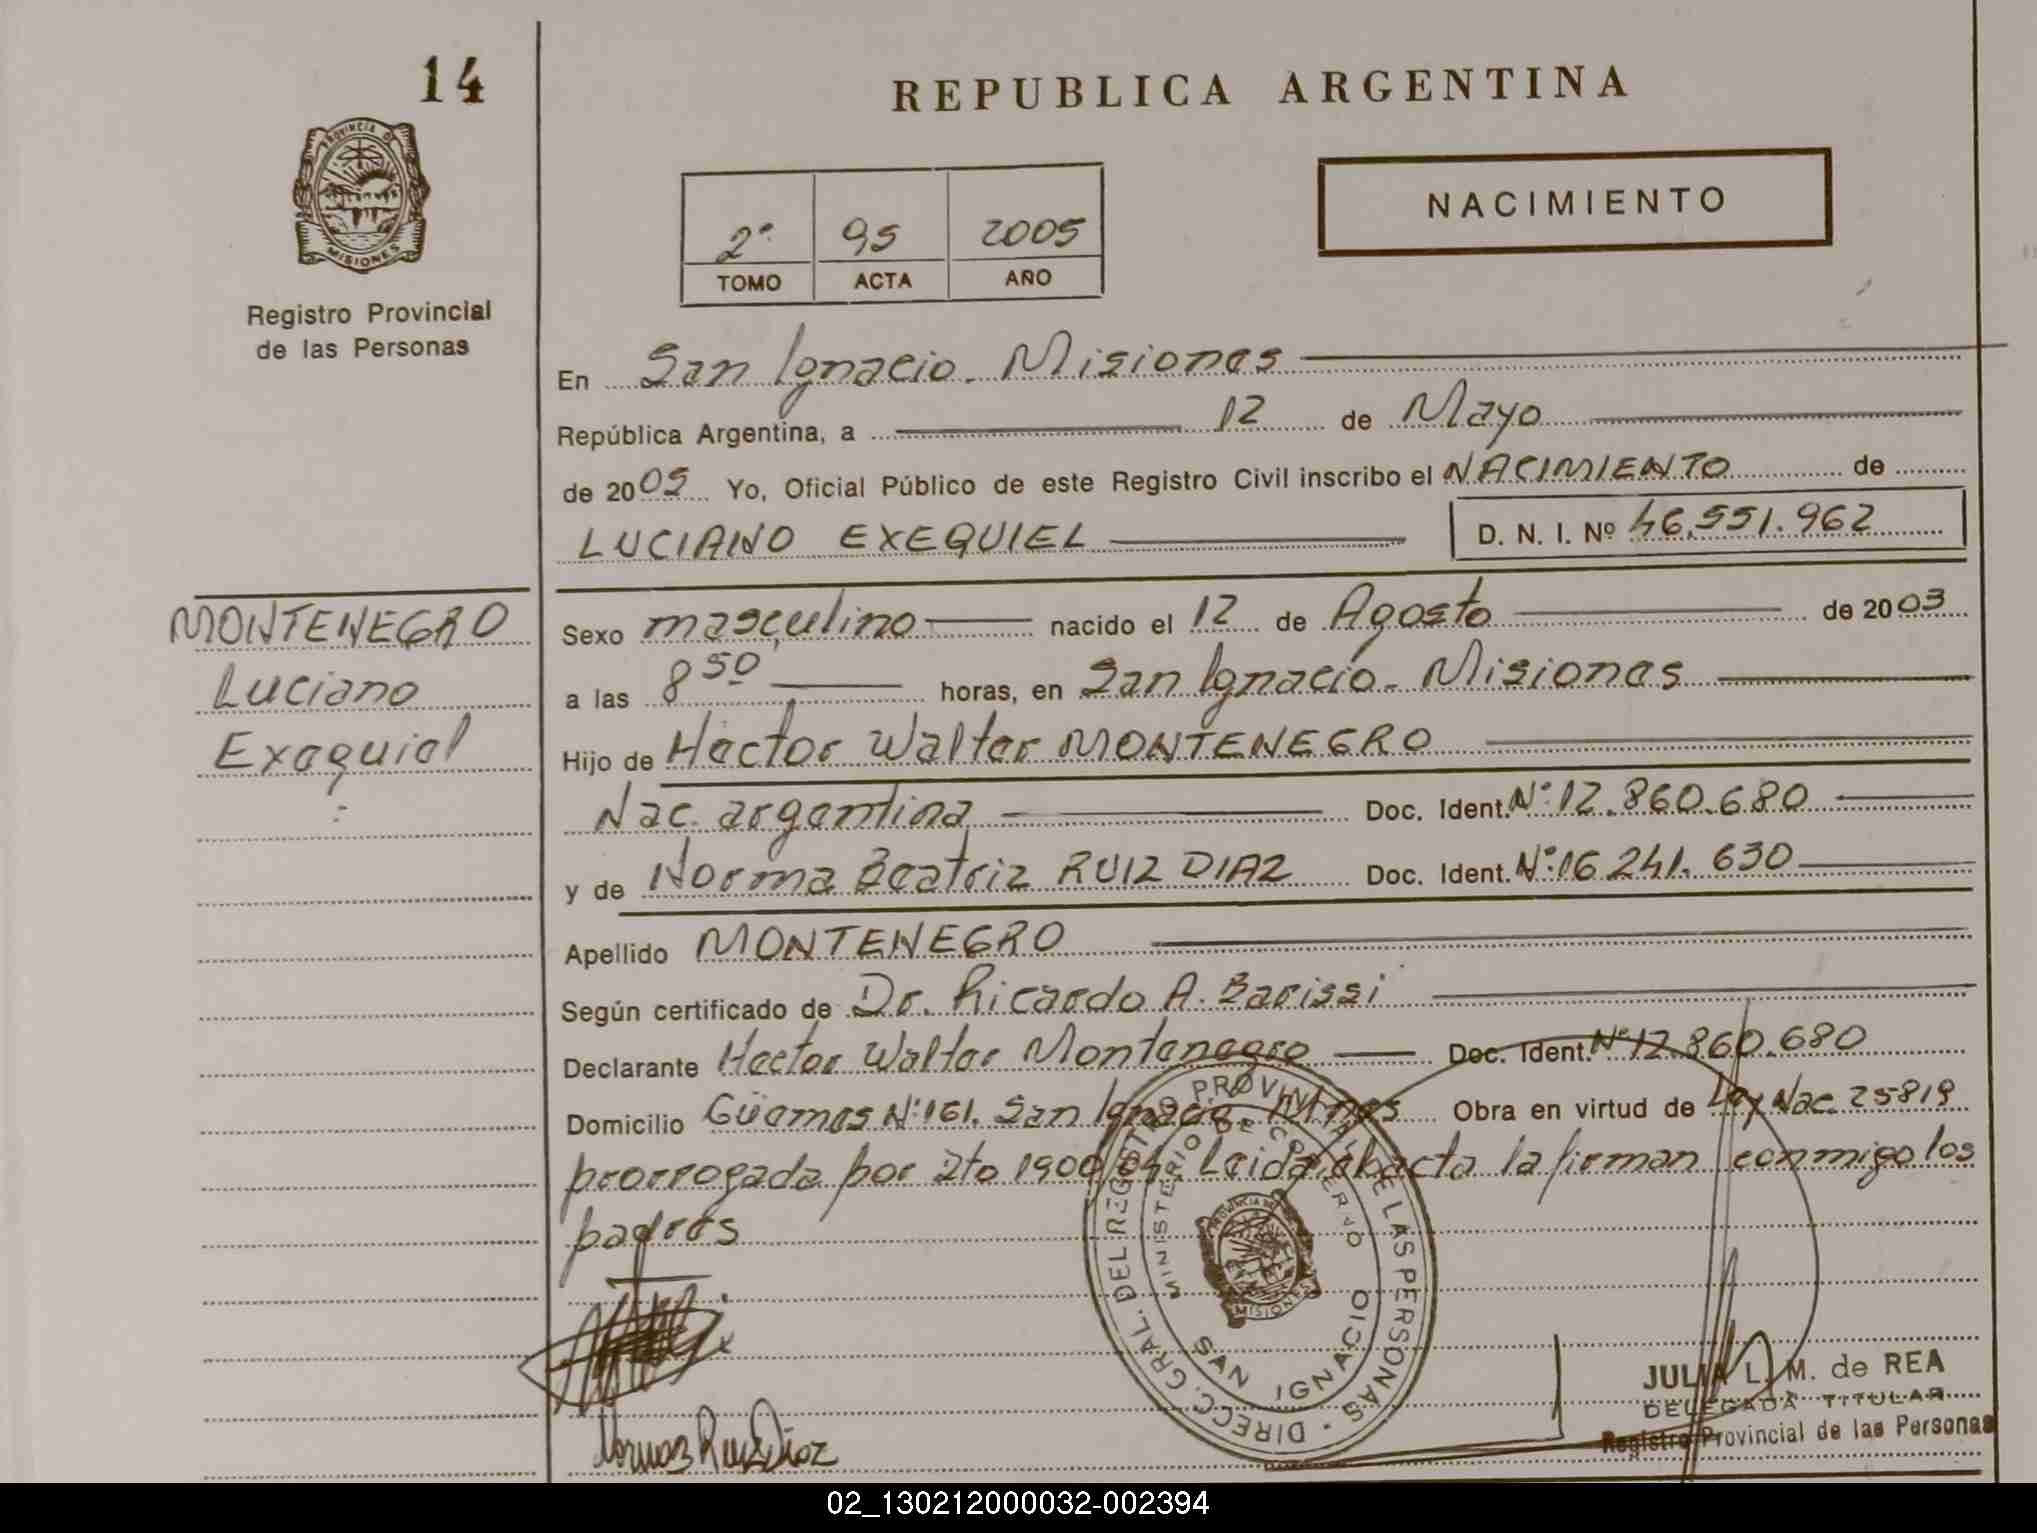 14
REPUBLICA ARGENTINA
PROVINCIA DE
MISIONES
Registro Provincial
de las Personas
NACIMIENTO
2º 95 2005
TOMO ACTA AÑO
En San Ignacio - Misiones
República Argentina, a 12 de Mayo
de 2005 Yo, Oficial Público de este Registro Civil inscribo el NACIMIENTO de
LUCIANO EXEQUIEL D. N. I. Nº 46.551.962
MONTENEGRO
Luciano
Exequiel
Sexo masculino nacido el 12 de Agosto de 2003
a las 8 50 horas, en San Ignacio - Misiones
Hijo de Hector Walter MONTENEGRO
Nac. argentina Doc. Ident. Nº: 12.860.680
y de Norma Beatriz RUIZ DIAZ Doc. Ident. Nº: 16.241.630
Apellido MONTENEGRO
Según certificado de Dr. Ricardo A. Barissi
Declarante Hector Walter Montenegro Doc. Ident. Nº 12.860.680
Domicilio Güemes Nº 161. San Ignacio Mnes Obra en virtud de Ley Nac. 25819
prorrogada por Dto 1900/04. Leida el acta la firman conmigo los
padres
DIRECC. GRAL. DEL REGISTRO PROVINCIAL DE LAS PERSONAS
MINISTERIO DE GOBIERNO
PROVINCIA DE
MISIONES
SAN IGNACIO
Norma Ruiz Diaz
JULIA L. M. de REA
DELEGADA TITULAR
Registro Provincial de las Personas
02_130212000032-002394